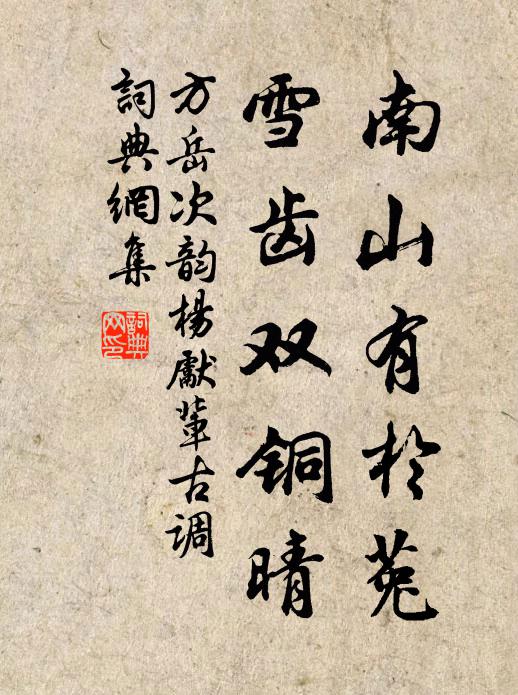 南山有於菟
雪齿双铜晴
方岳次韵楊獻輩古调
詞典網集
詞典网印